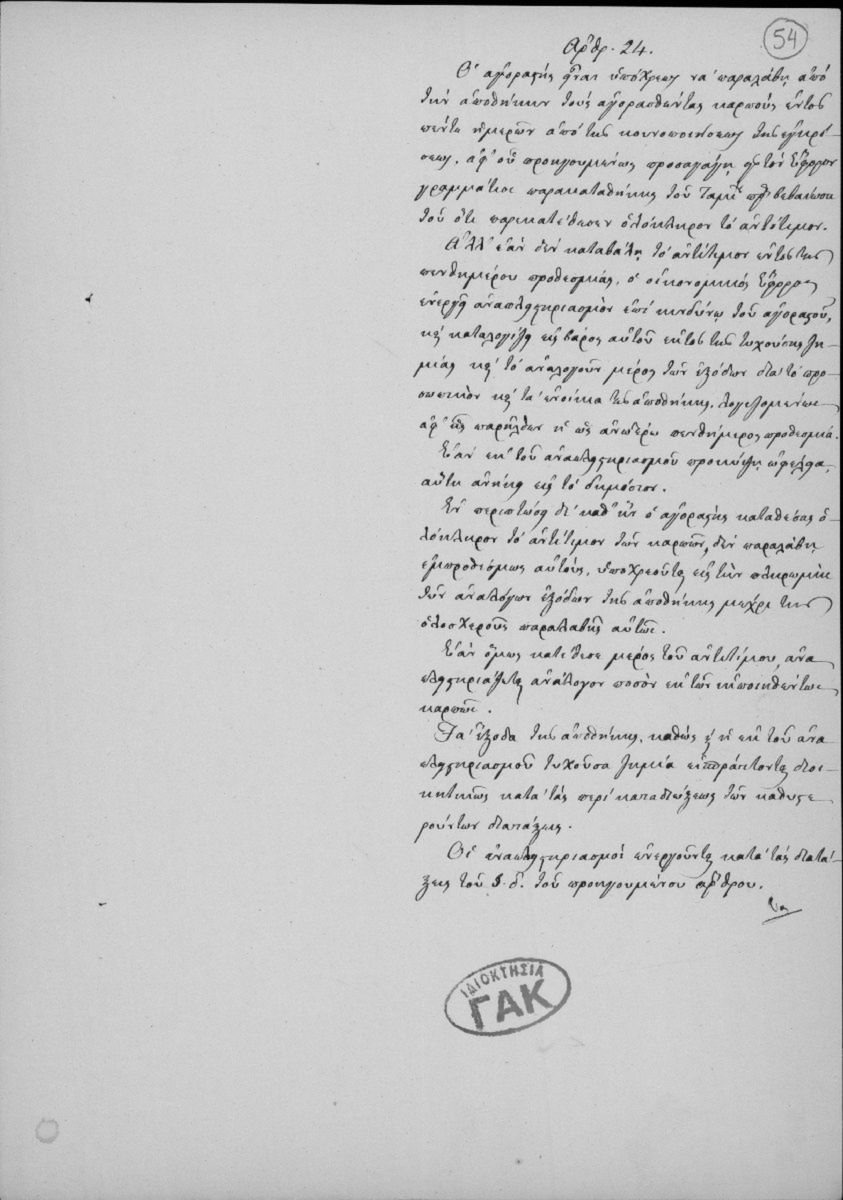 54
Άρθρ. 24.
Ὁ ἀγοραστὴς εἶναι ὑπόχρεως νὰ παραλάβῃ ἀπὸ
τὴν ἀποθήκην τοὺς ἀγορασθέντας καρποὺς ἐντὸς
πέντε ἡμερῶν ἀπὸ τῆς κοινοποιήσεως τῆς ἐγκρί-
σεως, ἀφ' οὗ προηγουμένως προσαγάγῃ εἰς τὸν Ἔφορον
γραμμάτιον παρακαταθήκης τοῦ Ταμ. βεβαιωτι
τοῦ ὅτι παρακατέθεσεν ὁλόκληρον τὸ ἀντίτιμον.
Ἀλλ' ἐὰν δὲν καταβάλῃ τὸ ἀντίτιμον ἐντὸς τῆς
πενθημέρου προθεσμίας, ὁ οἰκονομικὸς Ἔφορος
ἐνεργεῖ ἀναπλειστηριασμὸν ἐπὶ κινδύνῳ τοῦ ἀγοραστοῦ,
καὶ καταλογίζει εἰς βάρος αὐτοῦ ἐκτὸς τῆς τυχούσης ζη-
μίας καὶ τὸ ἀναλογοῦν μέρος τῶν ἐξόδων διὰ τὸ προ-
σωπικὸν καὶ τὰ ἐνοίκια τῆς ἀποθήκης, λογιζομένων
ἀφ' ἧς παρῆλθεν ἡ ὡς ἀνωτέρω πενθήμερος προθεσμία.
Ἐὰν ἐκ τοῦ ἀναπλειστηριασμοῦ προκύψῃ ὠφέλεια,
αὕτη ἀνήκει εἰς τὸ δημόσιον.
Ἐν περιπτώσει δὲ καθ' ἣν ὁ ἀγοραστὴς καταθέσας ὁ-
λόκληρον τὸ ἀντίτιμον τῶν καρπῶν, δὲν παραλάβῃ
ἐμπροθέσμως αὐτοὺς, ὑποχρεοῦται εἰς τὴν πληρωμὴν
τῶν ἀναλόγων ἐξόδων τῆς ἀποθήκης μέχρι τῆς
ὁλοσχεροῦς παραλαβῆς αὐτῶν.
Ἐὰν ὅμως κατέθεσε μέρος τοῦ ἀντιτίμου, ἀνα
πλειστηριάζεται ἀνάλογον ποσὸν ἐκ τῶν ἐκποιηθέντων
καρπῶν.
Τὰ ἔξοδα τῆς ἀποθήκης, καθὼς καὶ ἡ ἐκ τοῦ ἀνα
πλειστηριασμοῦ τυχοῦσα ζημία εἰσπράττονται διοι-
κητικῶς κατὰ τὰς περὶ καταδιώξεως τῶν καθυστε
ρούντων διατάξεις.
Οἱ ἀναπλειστηριασμοὶ ἐνεργοῦνται κατὰ τὰς διατά-
ξεις τοῦ §. δ. τοῦ προηγουμένου ἄρθρου.
ΙΔΙΟΚΤΗΣΙΑ
ΓΑΚ